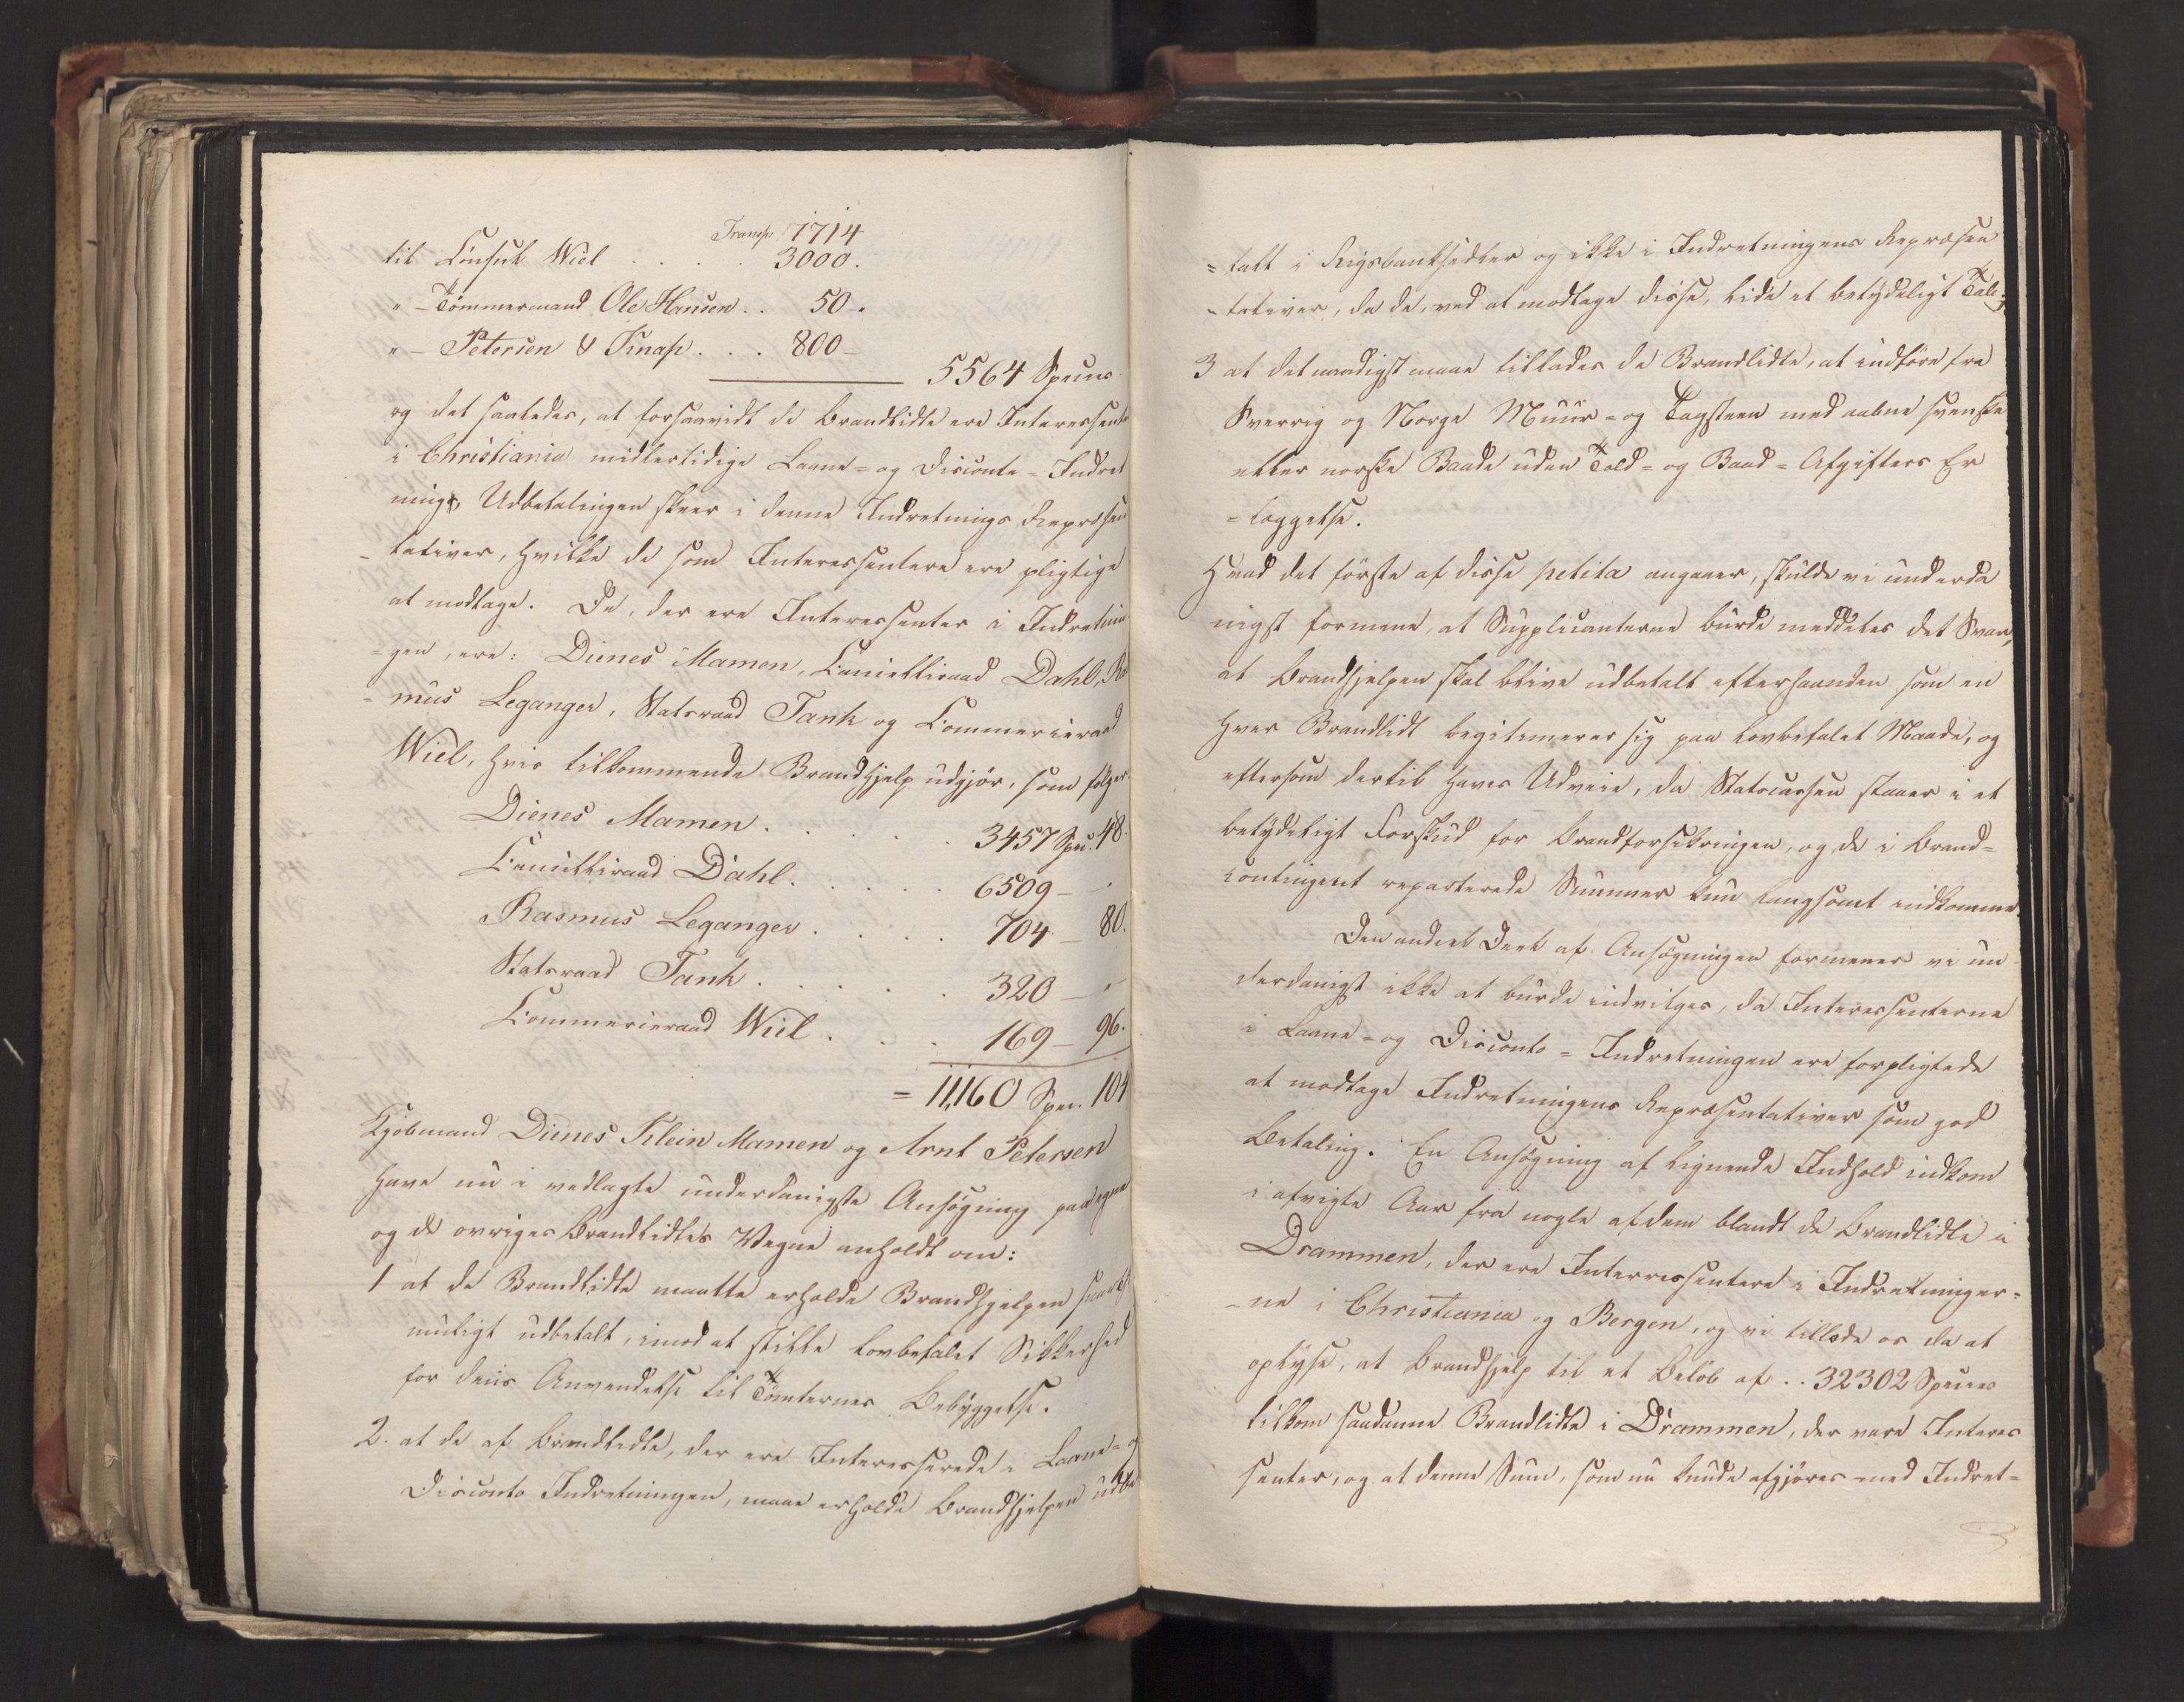 Transp. 1714
til Consul Wiel . . . . 3000.
" - Tömmermand Ole Hansen . . 50 -.
" - Petersen & Knap . . . 800 -
5564 Specier
og det saaledes, at forsaavidt de brandlidte ere Interessente
i Christiania midlertidige Laane- og Disconto-Indret
nings, Udbetalingen skeer i denne Indretnings Repræsen
-tativer, hvilke de som Interessentere ere pligtige
at modtage. De, der ere Interessenter i Indretnin
=gen, ere: Dienes Mamen, Cancelliraad Dahl, Ras
=mus Leganger, Statsraad Tank og Commerceraad
Wiel, hvis tilkommende Brandhjelp udgjør, som følger
Dienes Mamen . . . . . 3457 Spec. 48.
Cancelliraad Dahl . . . . . 6509 - "
Rasmus Leganger . . . . 704 - 80.
Statsraad Tank . . . . . 320 - "
Commerceraad Wiel . . . 169 - 96.
= 11,160 Spec. 104
Kjöbmand Dienes Klein Mamen og Arnt Petersen
have nu i vedlagte underdanigste Ansøgning paa egne
og de övriges Brandlidtes Vegne anholdt om:
1 at de Brandlidte maatte erholde Brandhjelpen snarest
muligt udbetalt, imod at stille lovbefalet Sikkerhed
for dens Anvendelse til Tomternes Bebyggelse.
2. at de af Brandlidte, der ere Interesserede i Laane- og
Disconto Indretningen, maae erholde Brandhjelpen udbe
=talt i Rigsbanksedler og ikke i Indretningens Repræsen
-tativer, da de, ved at modtage disse, lide et betydeligt Tab;
3 at det naadigst maae tillades de Brandlidte, at indføre fra
Sverrig og Norge Muur- og Tagsteen med aabne svenske
eller norske Baade uden Told- og Baad-Afgifters Er
=læggelse.
Hvad det første af disse petita angaaer, skulde vi underda
nigst formene, at Supplicanterne burde meddeles det Svar,
at Brandhjelpen skal blive udbetalt efterhaanden som en
hver Brandlidt legitimerer sig paa lovbefalet Maade, og
eftersom dertil haves Udveie, da Statscassen staaer i et
betydeligt Forskud for Brandforsikringen, og de i Brand-
contingent reparterede Summer kun langsomt indkomme.
Den anden Deel af Ansøgningen formener vi un
derdanigst ikke at burde indvilges, da Interessenterne
i Laane- og Disconto-Indretningen ere forpligtede
at modtage Indretningens Repræsentativer som god
Betaling. En Ansøgning af lignende Indhold indkom
i afvigte Aar fra nogle af dem blandt de Brandlidte i
Drammen, der ere Interressentere i Indretninger-
-ne i Christiania og Bergen, og vi tillode os da at
oplyse, at Brandhjelp til et Beløb af . . 32302 Specier
tilkom saadanne Brandlidte i Drammen, der vare Interes
senter, og at denne Sum, som nu kunde afgjøres med Indret-